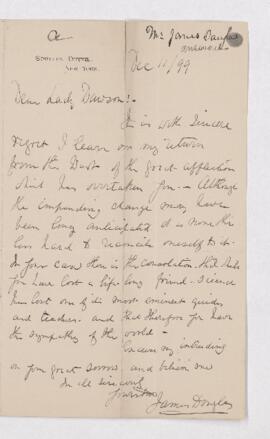 Mr James Douglas
answered
SPUYTEN DUYVIL
NEW YORK.
Dec 11/99
Dear Lady Dawson:-
It is with sincere
regret I learn on my return
from the West of the great affliction
which has overtaken you - Although
the impending change may have
been long anticipated it is none the
less hard to reconcile oneself to it.
In your case there is the consolation that while
you have lost a life long friend - Science
has lost one of its most eminent guides
and teacher - and that therefore you have
the sympathy of the world -
on your great sorrow, and believe me
In all sincerity
Yours
James Douglas